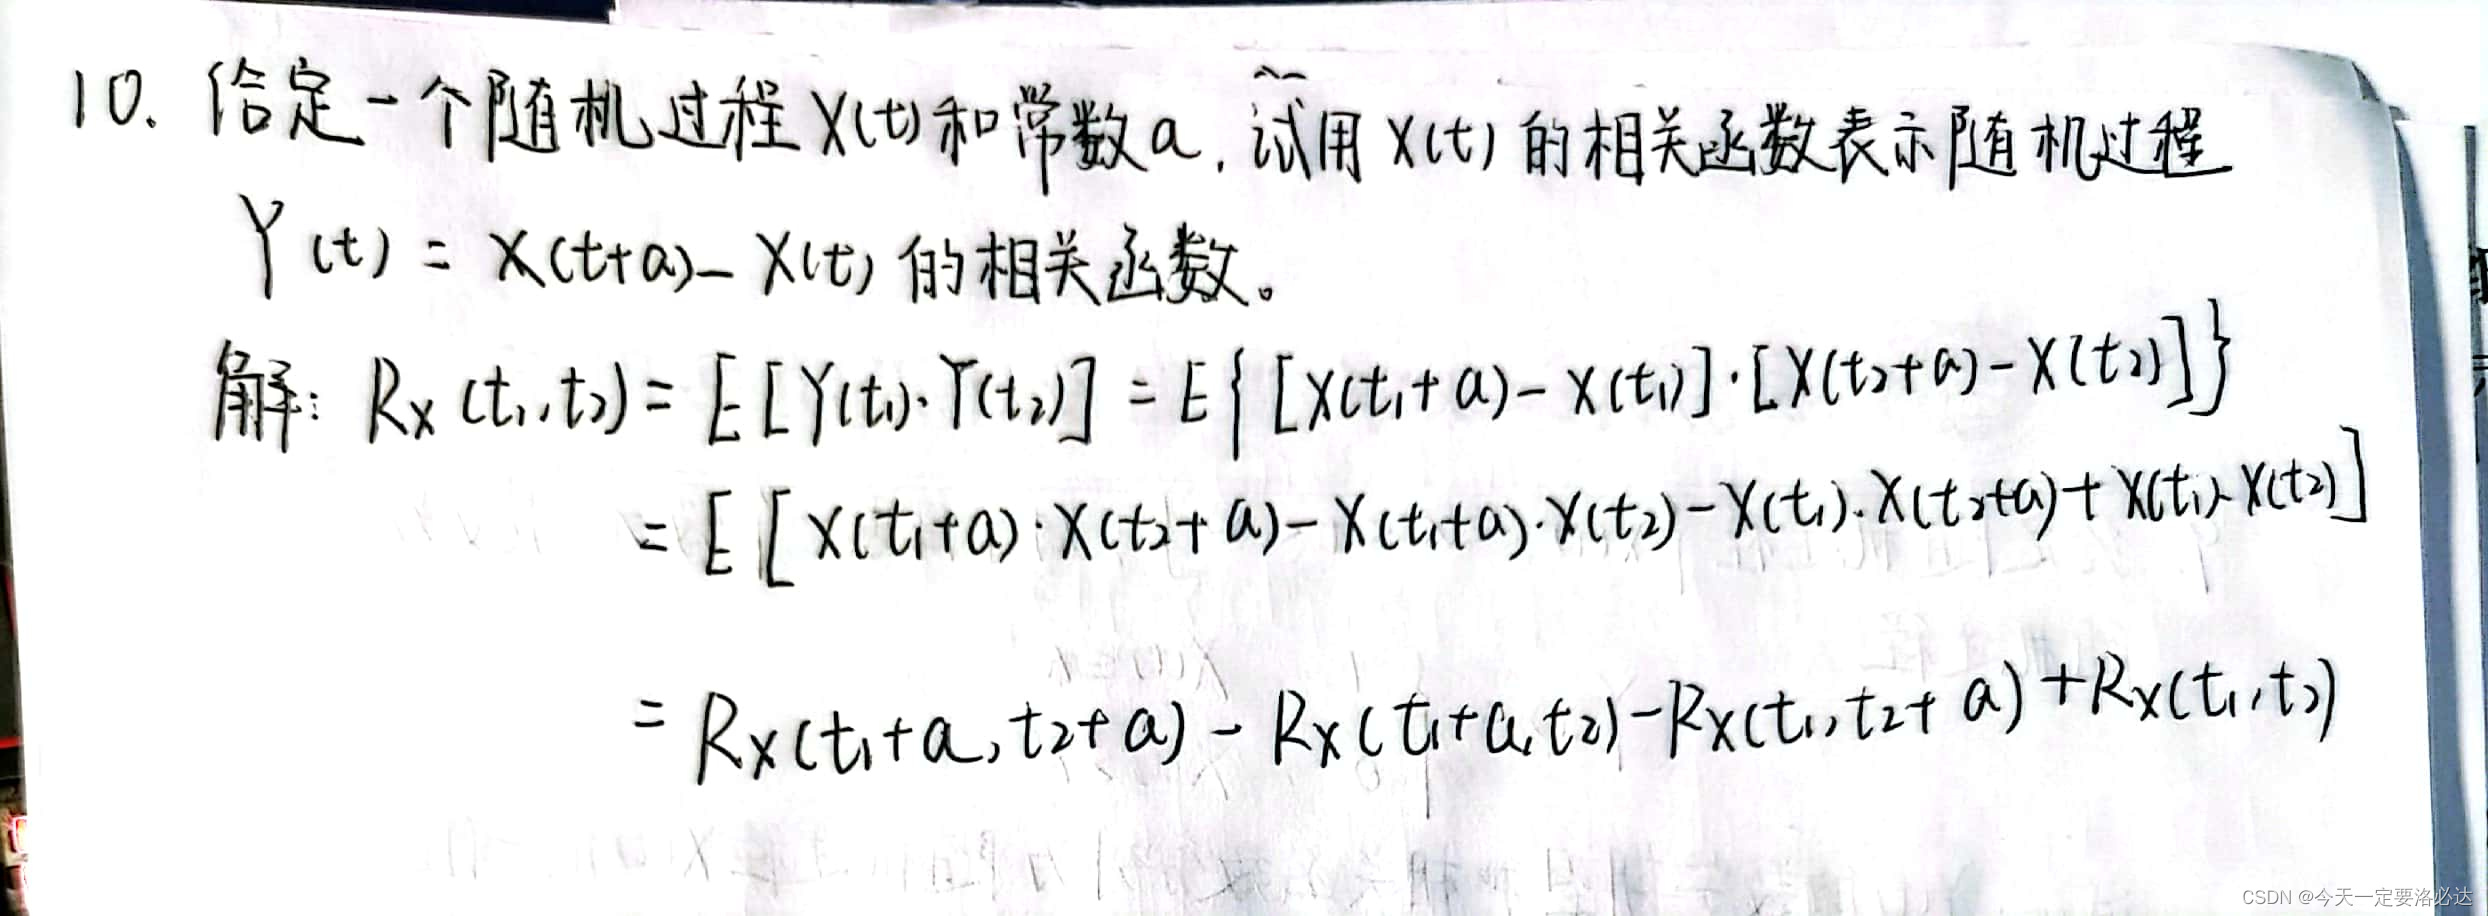 10. 给定一个随机过程X(t)和常数a,试用X(t)的相关函数表示随机过程
Y(t) = X(t+a)-X(t)的相关函数。
解: Rx(t₁,t₂) = E[Y(t₁)·Y(t₂)] = E{[X(t₁+a)-X(t₁)]·[X(t₂+a)-X(t₂)]}
= E[X(t₁+a)·X(t₂+a)-X(t₁+a)·X(t₂)-X(t₁)·X(t₂+a)+X(t₁)·X(t₂)]
= Rx(t₁+a,t₂+a)-Rx(t₁+a,t₂)-Rx(t₁,t₂+a)+Rx(t₁,t₂)
CSDN @今天一定要洛必达